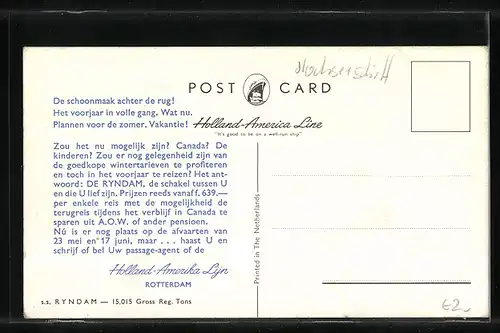 POST CARD
De schoonmaak achter de rug!
Het voorjaar in volle gang, Wat nu.
Plannen voor de zomer. Vakantie!
Holland-America Line
"It's good to be on a well-run ship"
Zou het nu mogelijk zijn? Canada? De
kinderen? Zou er nog gelegenheid zijn van
de goedkope wintertarieven te profiteren
en toch in het voorjaar te reizen? Het ant-
woord: DE RYNDAM, de schakel tussen U
en die U lief zijn. Prijzen reeds vanaf f. 639.—
per enkele reis met de mogelijkheid de
terugreis tijdens het verblijf in Canada te
sparen uit A.O.W. of ander pensioen.
Nú is er nog plaats op de afvaarten van
23 mei en 17 juni, maar ... haast U en
schrijf of bel Uw passage-agent of de
Holland-Amerika Lijn
ROTTERDAM
s.s. RYNDAM — 15,015 Gross Reg. Tons
Printed in The Netherlands
62.